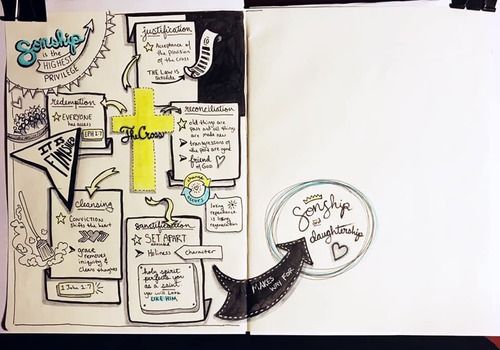 Sonship
is the
HIGHEST
PRIVILEGE
justification
Acceptance of
the provision
of the cross
THE LAW is
redemption
EVERYONE
has access
EPH 1:7
The Cross
reconciliation
old things are
past and all things
are made new
transgressions of
the past are gone
friend
of God
IT IS
FINISHED
change
occurs
living
repentance
living
regeneration
cleansing
CONVICTION
shifts the heart
grace
removes
iniquity &
clears
1 John 1:7
sanctification
SET APART
Holiness
character
holy spirit
perfects you
as a saint
you will look
LIKE HIM
MAKES
WAY FOR
Sonship
and
daughtership